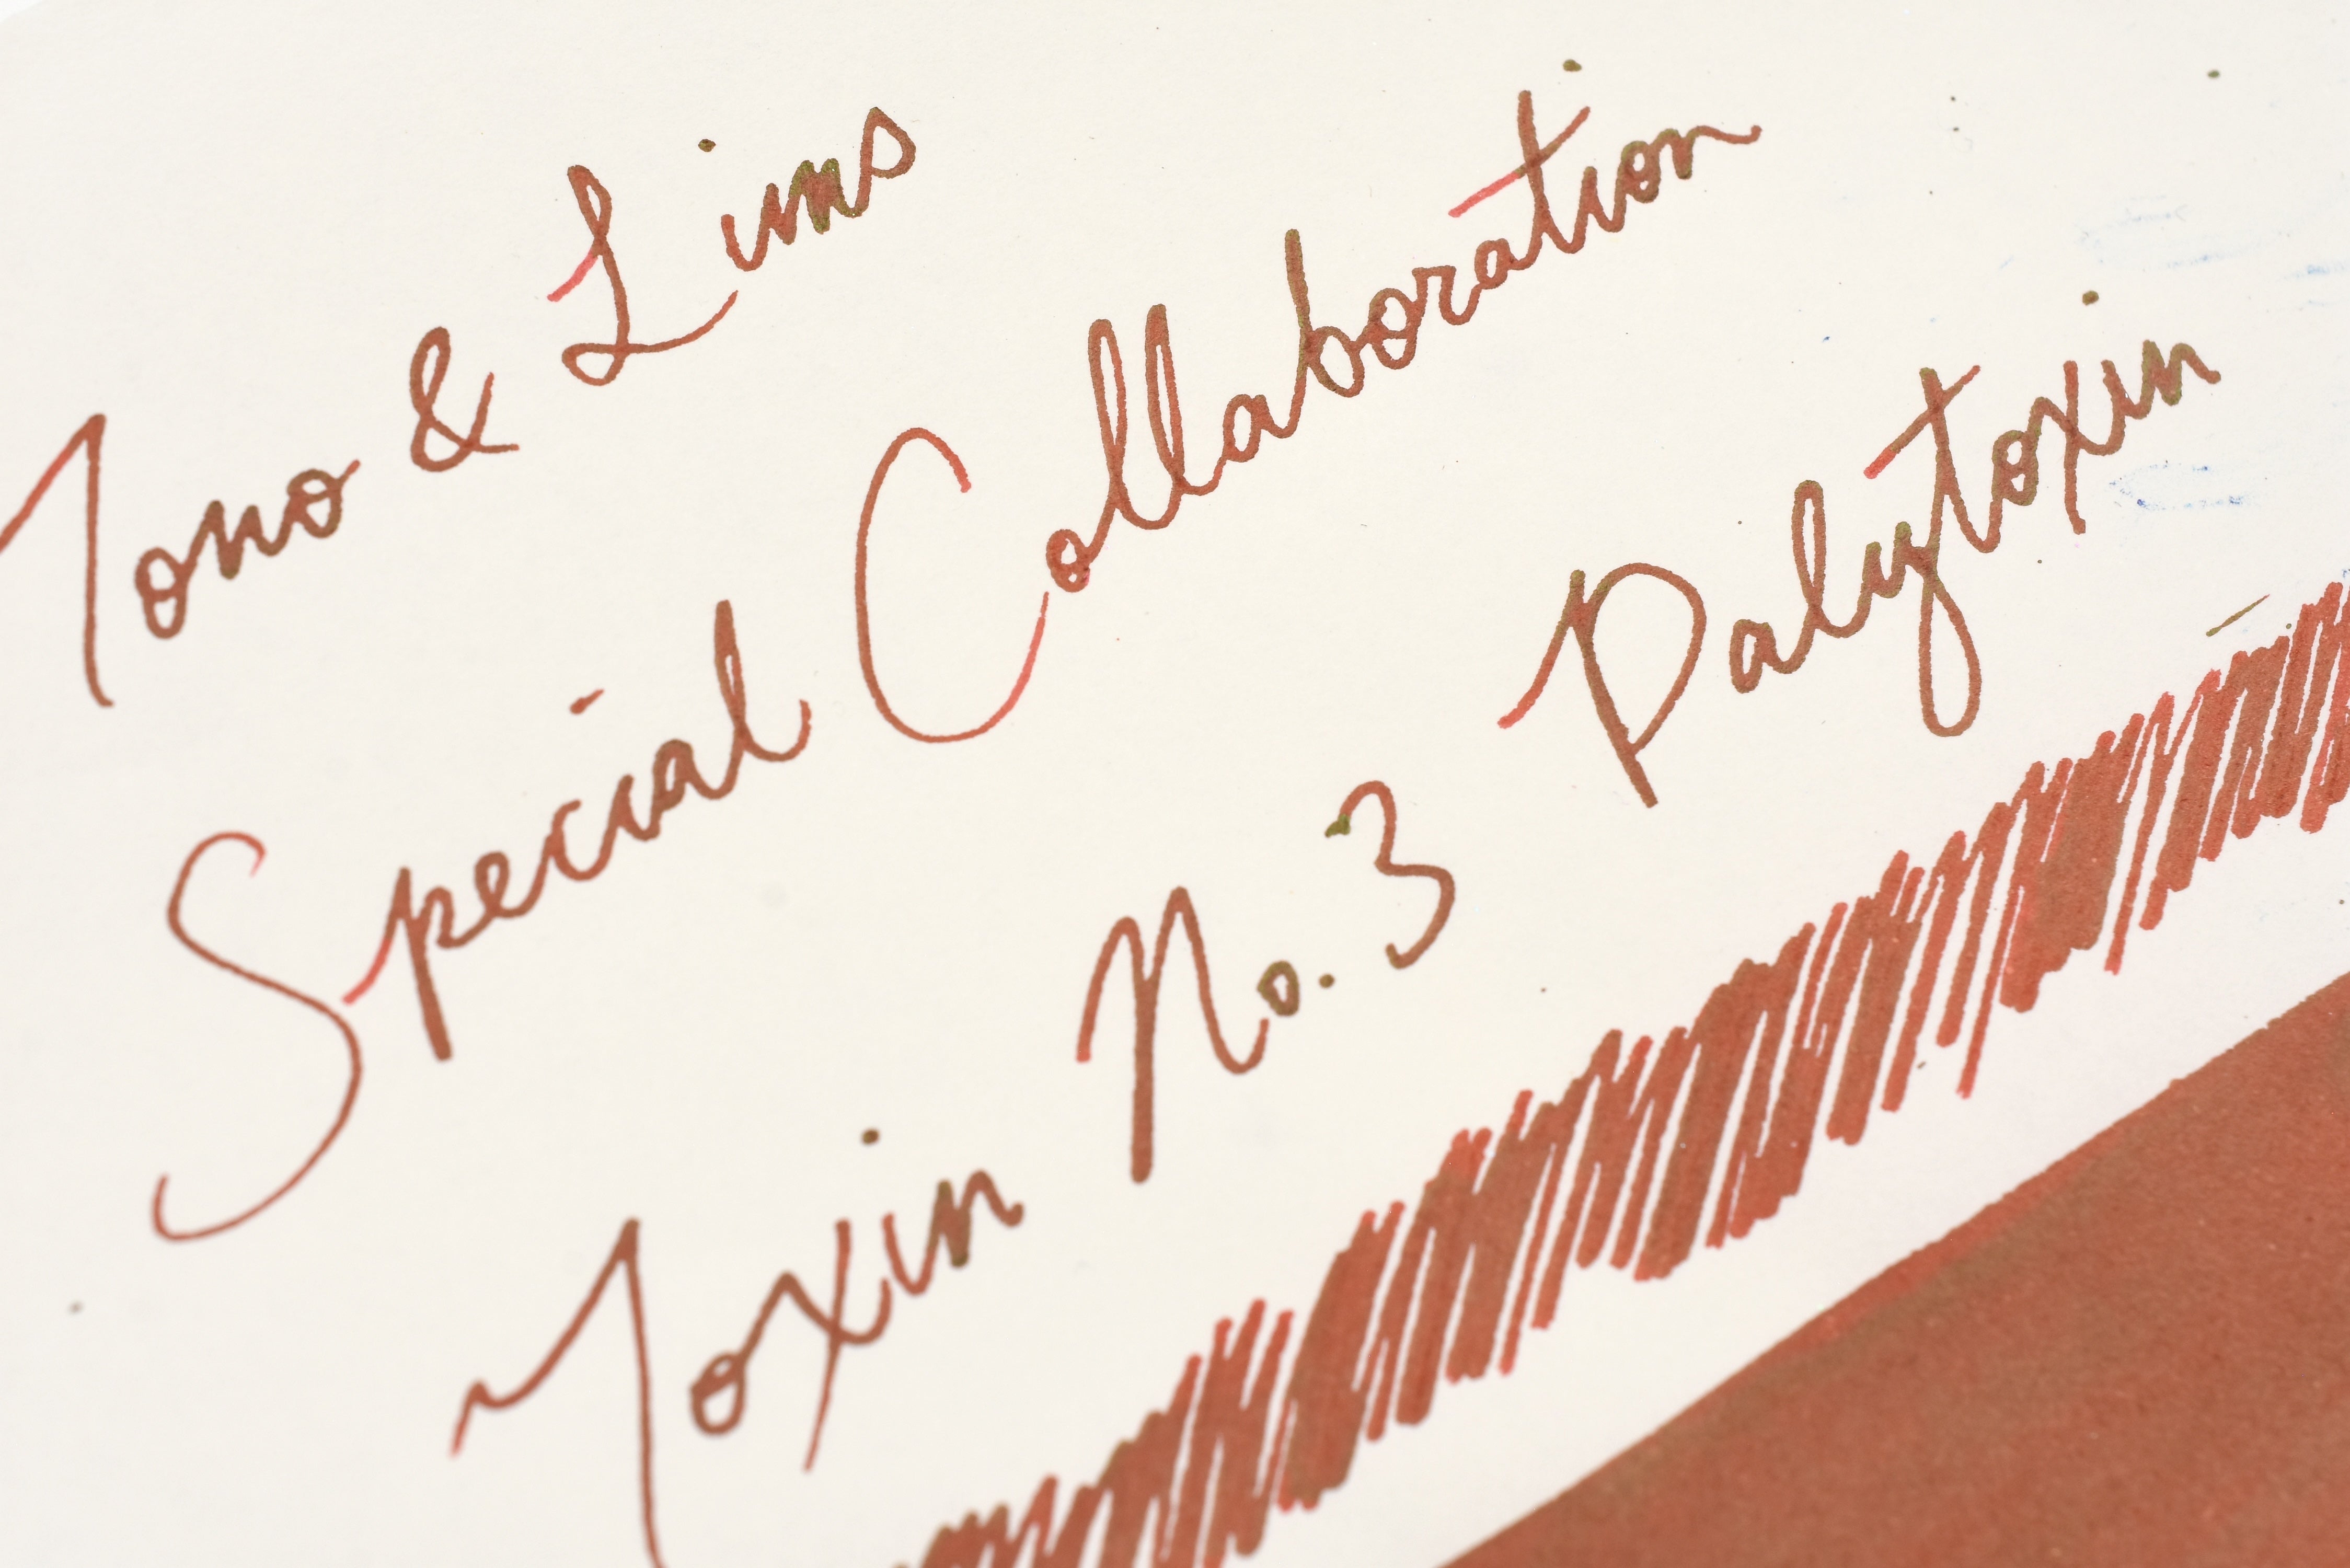 Tono & Lims
Special Collaboration
Toxin No. 3 Palytoxin